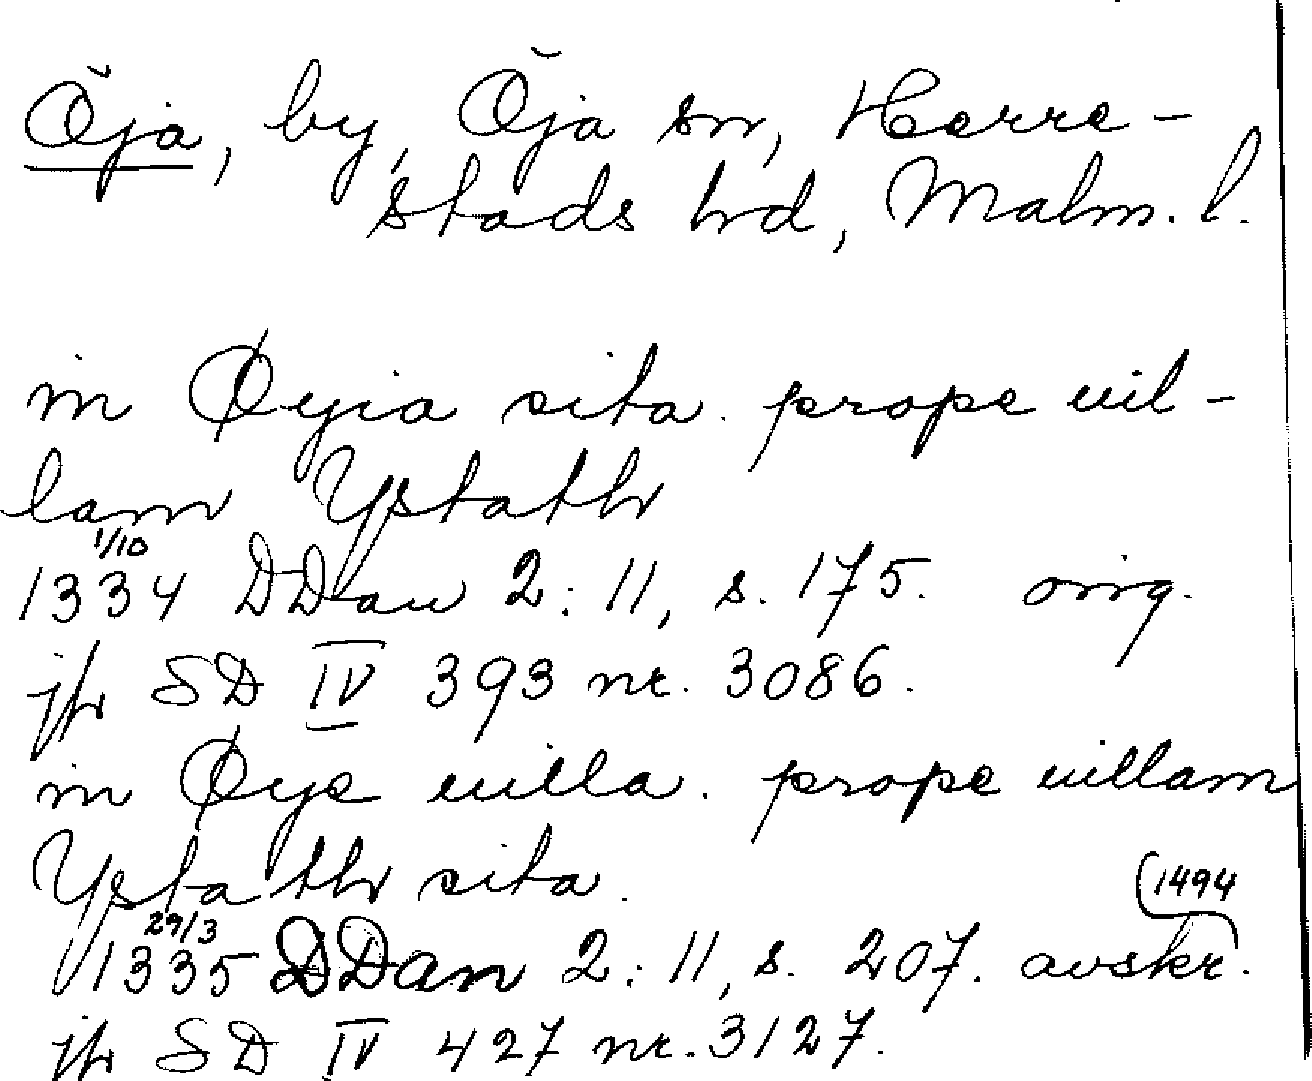 Öja, by, Öja sn, Herre-
stads hd, Malm. l.
in Øyia sita. prope uil-
lam Ystath
1/10
1334 DDan 2: 11, s. 175. orig.
jfr SD IV 393 nr. 3086.
in Øye uilla. prope uillam
Ystath sita.
(1494
29/3
1335 DDan 2: 11, s. 207. avskr.
jfr SD IV 427 nr. 3127.